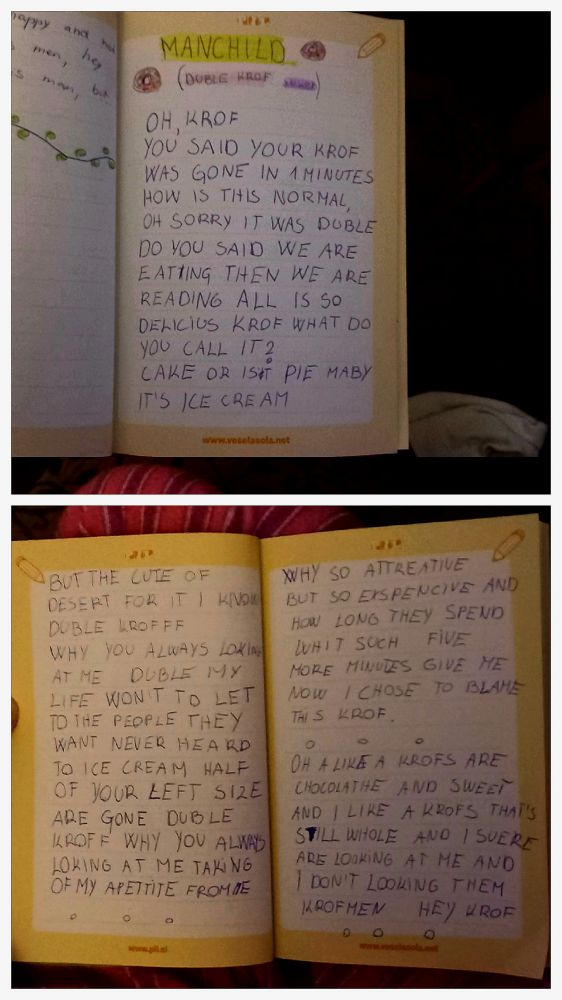 happy and
men, hey
man, but
MANCHILD
(DUBLE KROF)
OH, KROF
YOU SAID YOUR KROF
WAS GONE IN 1 MINUTES
HOW IS THIS NORMAL,
OH SORRY IT WAS DUBLE
DO YOU SAID WE ARE
EATING THEN WE ARE
READING ALL IS SO
DELICIUS KROF WHAT DO
YOU CALL IT?
CAKE OR IS IT PIE MABY
IT'S ICE CREAM
www.veselasola.net
BUT THE CUTE OF
DESERT FOR IT I KNOW
DUBLE KROFFF
WHY YOU ALWAYS LOKING
AT ME DUBLE MY
LIFE WON'T TO LET
TO THE PEOPLE THEY
WANT NEVER HEARD
TO ICE CREAM HALF
OF YOUR LEFT SIZE
ARE GONE DUBLE
KROFF WHY YOU ALWAYS
LOKING AT ME TAKING
OF MY APETTITE FROM ME
www.pil.si
WHY SO ATTREATIVE
BUT SO EXSPENCIVE AND
HOW LONG THEY SPEND
WHIT SUCH FIVE
MORE MINUTES GIVE ME
NOW I CHOSE TO BLAME
THIS KROF.
OH A LIKE A KROFS ARE
CHOCOLATHE AND SWEET
AND I LIKE A KROFS THAT'S
STILL WHOLE AND I SUERE
ARE LOOKING AT ME AND
I DON'T LOOKING THEM
KROFMEN HEY KROF
www.veselasola.net